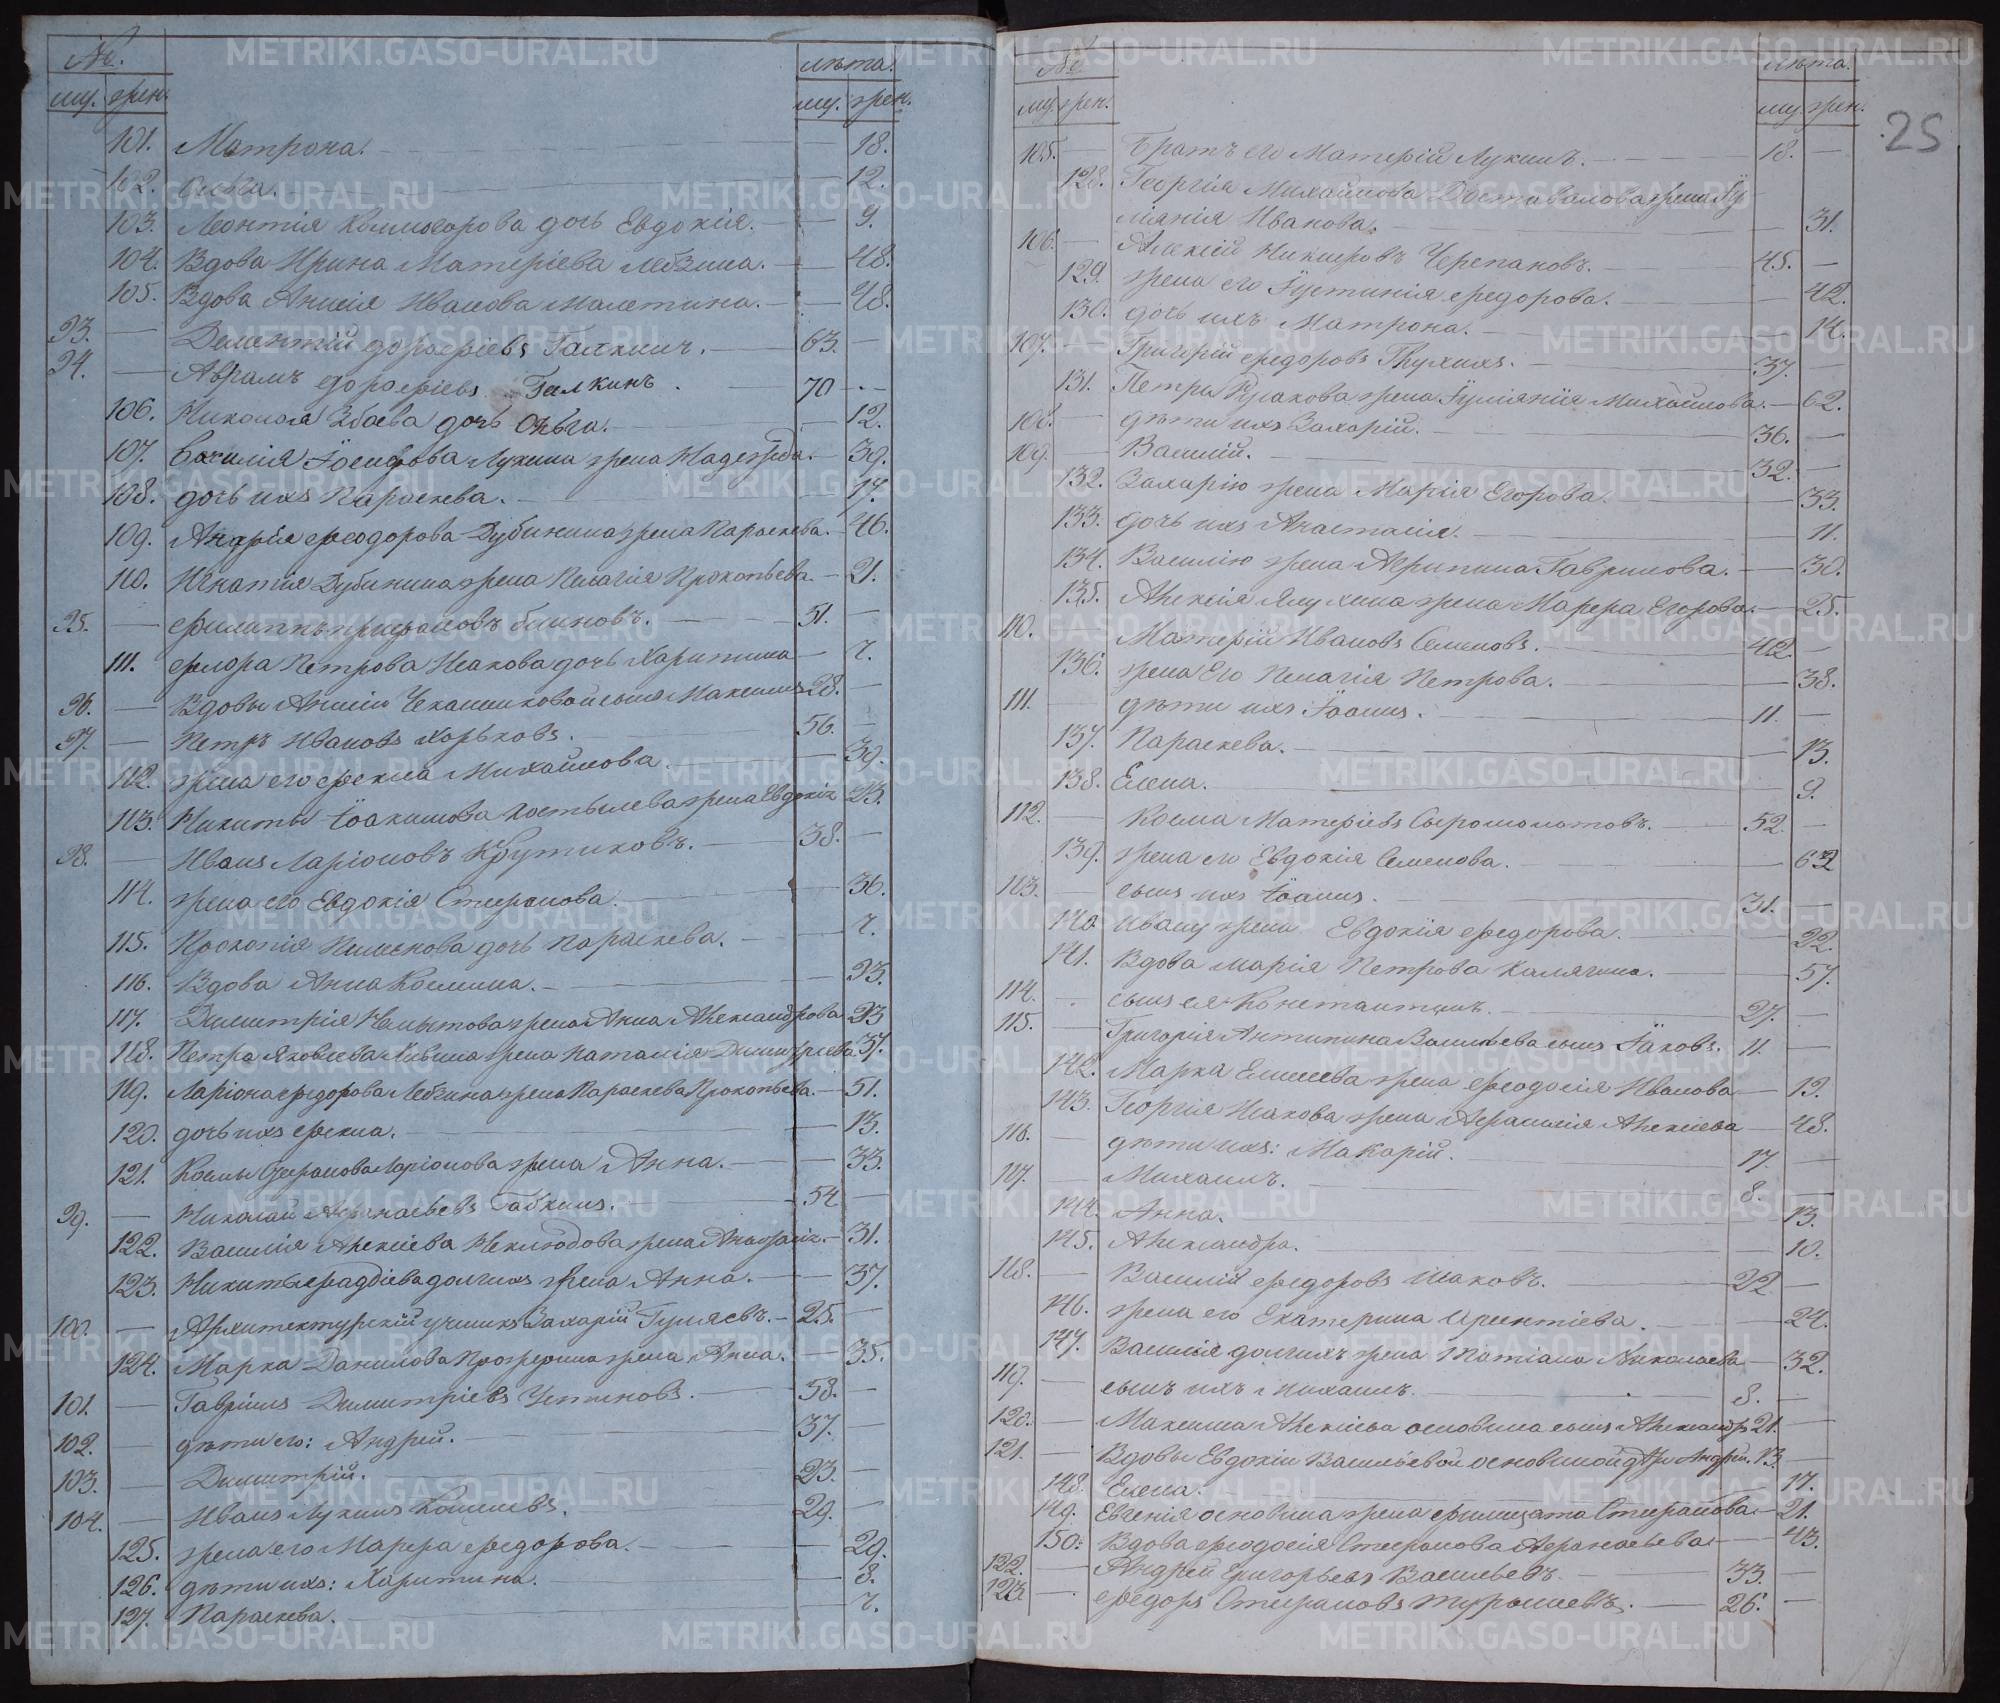 №.
лѣта.
му. жен.
му. жен.
101. Матрона. 18.
102. Ольга. 12.
103. Леонтія Колмогорова дочь Евдокія. 9.
104. Вдова Ирина Матѳѣіева Лебзина. 48.
105. Вдова Анисія Иванова Малетина. 48.
93. Дементій дороѳѣіевъ Галкинъ. 63.
94. Аврамъ дороѳѣіевъ Галкинъ. 70
106. Николая дочь Ольга. 12.
107. Василія Іосифова Лукина жена Надежда. 39.
108. дочь ихъ Параскева. 17.
109. Андрея Ѳеодорова Дубинина жена Параскева. 46.
110. Игнатія Дубинина жена Пелагія Прокопьева. 21.
95. Филиппъ Блиновъ. 51.
111. Флора Петрова Исакова дочь Харитина 7.
96. Вдовы Анисіи сынъ Максимъ 28.
97. Петръ Ивановъ Хорьковъ. 56.
112. жена его Ѳекла Михайлова. 39.
113. Никиты Іоакимова Костылева жена Евдокія 23.
98. Иванъ Ларіоновъ Крутиковъ. 38.
114. жена его Евдокія Стефанова. 36.
115. Прокопія дочь Параскева. 7.
116. Вдова Анна Космина. 93.
117. Димитрія жена Анна Александрова 23
118. Петра Яковлева жена Наталія Димитріева 37.
119. Ларіона Ѳедорова Лебзина жена Параскева Прокопьева. 51.
120. дочь ихъ Ѳекла. 13.
121. Космы Стефанова Ларіонова жена Анна. 33.
99. Николай Аѳанасьевъ Бабкинъ. 54
122. Василія Алексіева Неклюдова жена 31.
123. Никиты Фаддѣева Долгихъ жена Анна. 37.
100. Архитектурскій ученикъ Захарій Гуляевъ. 25.
124. Марка Данилова жена Анна. 35.
101. Гавріилъ Димитріевъ Устиновъ. 58.
102. дѣти его: Андрей. 37.
103. Димитрій. 23.
104. Иванъ Лукинъ 29.
125. жена его Марѳа Ѳедорова. 29.
126. дѣти ихъ: Харитина. 8.
127. Параскева. 7.
№.
лѣта.
му. жен.
му. жен.
25
105. Братъ его Матѳѣй Лукинъ. 18.
128. Георгія Михайлова Доставалова жена Іу-
ліанія Иванова. 31.
106. Алексій Никифоровъ Черепановъ. 45.
129. жена его Іустинія Ѳедорова. 42.
130. дочь ихъ Матрона. 14.
107. Григорій Ѳедоровъ Глухихъ. 37.
131. Петра Русакова жена Іуліанія Михайлова. 62.
108. дѣти ихъ Захарій. 36.
109. Василій. 32.
132. Захарію жена Марія Егорова. 33.
133. дочь ихъ Анастасія. 11.
134. Василію жена Агрипина Гаврилова. 30.
135. Алексія жена Марѳа Егорова. 25.
110. Матѳѣй Ивановъ Семеновъ. 42.
136. жена Его Пелагія Петрова. 38.
111. дѣти ихъ Іоаннъ. 11.
137. Параскева. 13.
138. Елена. 9.
112. Косма Матѳѣіевъ Сыромолотовъ. 52.
139. жена его Евдокія Семенова. 62
113. сынъ ихъ Іоаннъ. 31.
140 Ивану жена Евдокія Ѳедорова. 22.
141. Вдова Марія Петрова Калягина. 57.
114. сынъ ея Константинъ. 27.
115. Григорія Антипина Васильева сынъ Іаковъ. 11.
142. Марка Елисеева жена Ѳеодосія Иванова 19.
143. Георгія Исакова жена Аѳанасія Алексіева 48.
116. дѣти ихъ: Макарій. 17.
117. Михаилъ. 8.
144. Анна. 13.
145. Александра. 10.
118. Василій Ѳедоровъ Исаковъ. 22.
146. жена его Екатерина 24.
147. Василія долгихъ жена Татіана Николаева 32.
119. сынъ ихъ Михаилъ. 8.
120. Максима Алексіева Основина сынъ Александръ 21.
121. Вдовы Евдокіи Васильевой Основиной дѣти Андрей. 13.
148. Елена. 17.
149. Евгенія Основина жена Филицата Стефанова 21.
150. Вдова Ѳеодосія Стефанова Аѳанасьева 43.
122. Андрей Григорьевъ Васильевъ. 33.
123 Ѳедоръ Стефановъ 26.